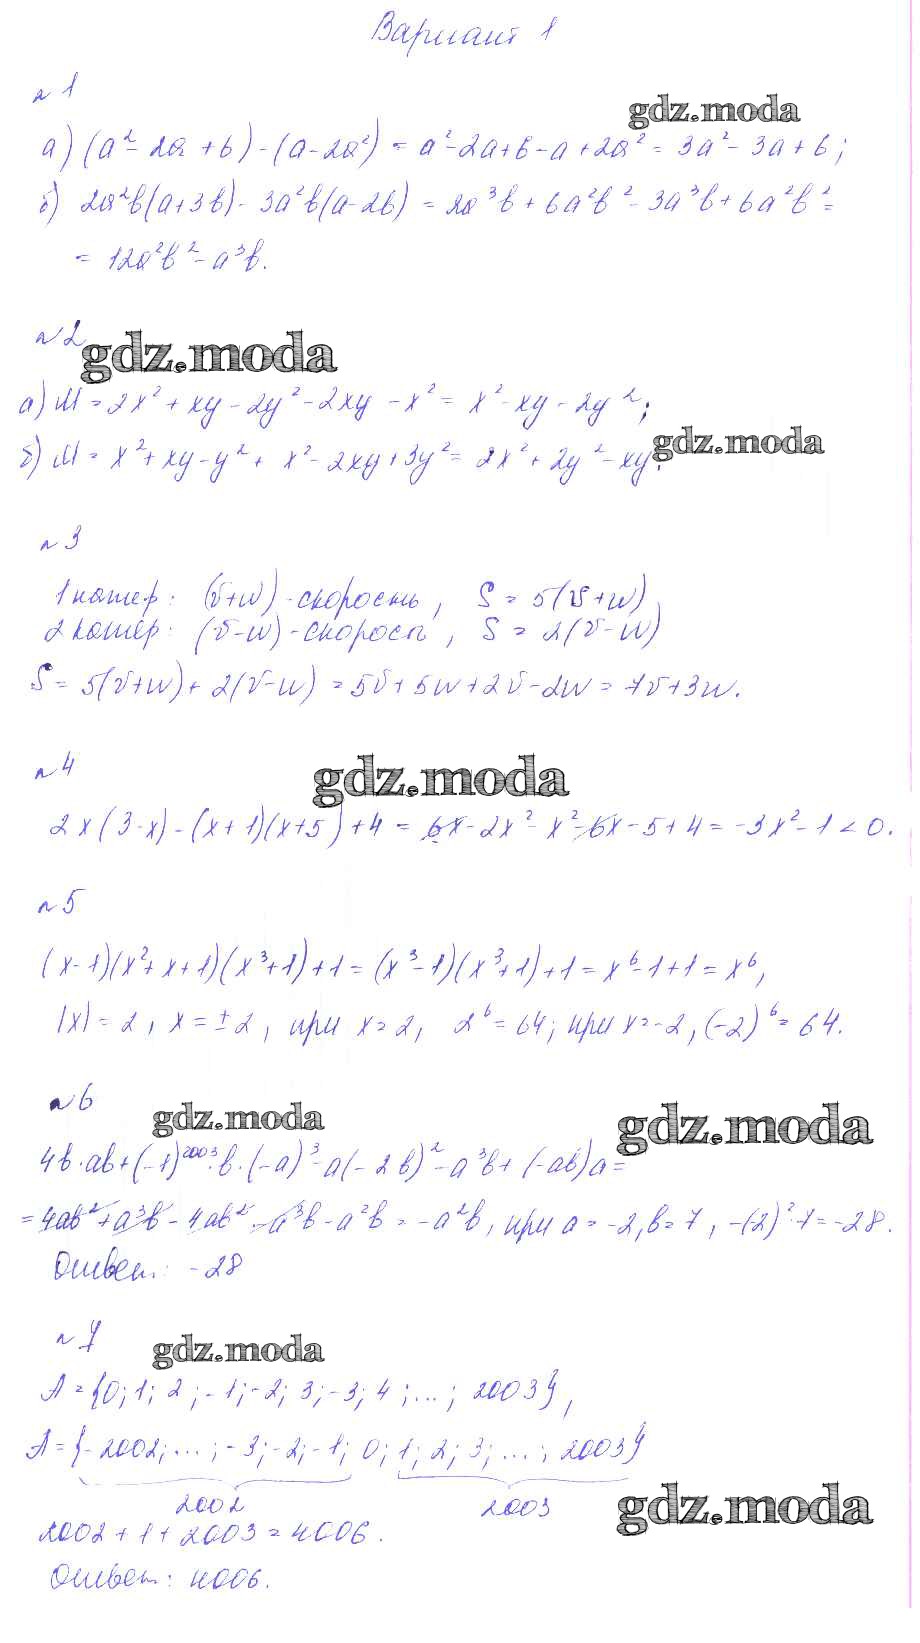 Вариант 1
№1
gdz.moda
а) (a² - 2a + b) - (a - 2a²) = a² - 2a + b - a + 2a² = 3a² - 3a + b;
б) 2a²b(a+3b) - 3a²b(a-2b) = 2a³b + 6a²b² - 3a³b + 6a²b² =
= 12a²b² - a³b.
№2
gdz.moda
а) M = 2x² + xy - 2y² - 2xy - x² = x² - xy - 2y²;
gdz.moda
б) M = x² + xy - y² + x² - 2xy + 3y² = 2x² + 2y² - xy.
№3
1 катер: (v+w) - скорость, S = 5(v+w)
2 катер: (v-w) - скорость, S = 2(v-w)
S = 5(v+w) + 2(v-w) = 5v + 5w + 2v - 2w = 7v + 3w.
№4
gdz.moda
2x(3-x) - (x+1)(x+5) + 4 = 6x - 2x² - x² - 6x - 5 + 4 = -3x² - 1 < 0.
№5
(x-1)(x²+x+1)(x³+1) + 1 = (x³-1)(x³+1) + 1 = x⁶ - 1 + 1 = x⁶,
|x| = 2, x = ±2, при x = 2, 2⁶ = 64; при x = -2, (-2)⁶ = 64.
№6
gdz.moda
gdz.moda
4b·ab + (-1)²⁰⁰³·b·(-a)³ - a(-2b)² - a³b + (-ab)a =
= 4ab² + a³b - 4ab² - a³b - a²b = -a²b, при a = -2, b = 7, -(-2)²·7 = -28.
Ответ: -28
№7
gdz.moda
A = {0; 1; 2; -1; -2; 3; -3; 4; ...; 2003},
A = {-2002; ...; -3; -2; -1; 0; 1; 2; 3; ...; 2003}
2002 2003
gdz.moda
2002 + 1 + 2003 = 4006.
Ответ: 4006.